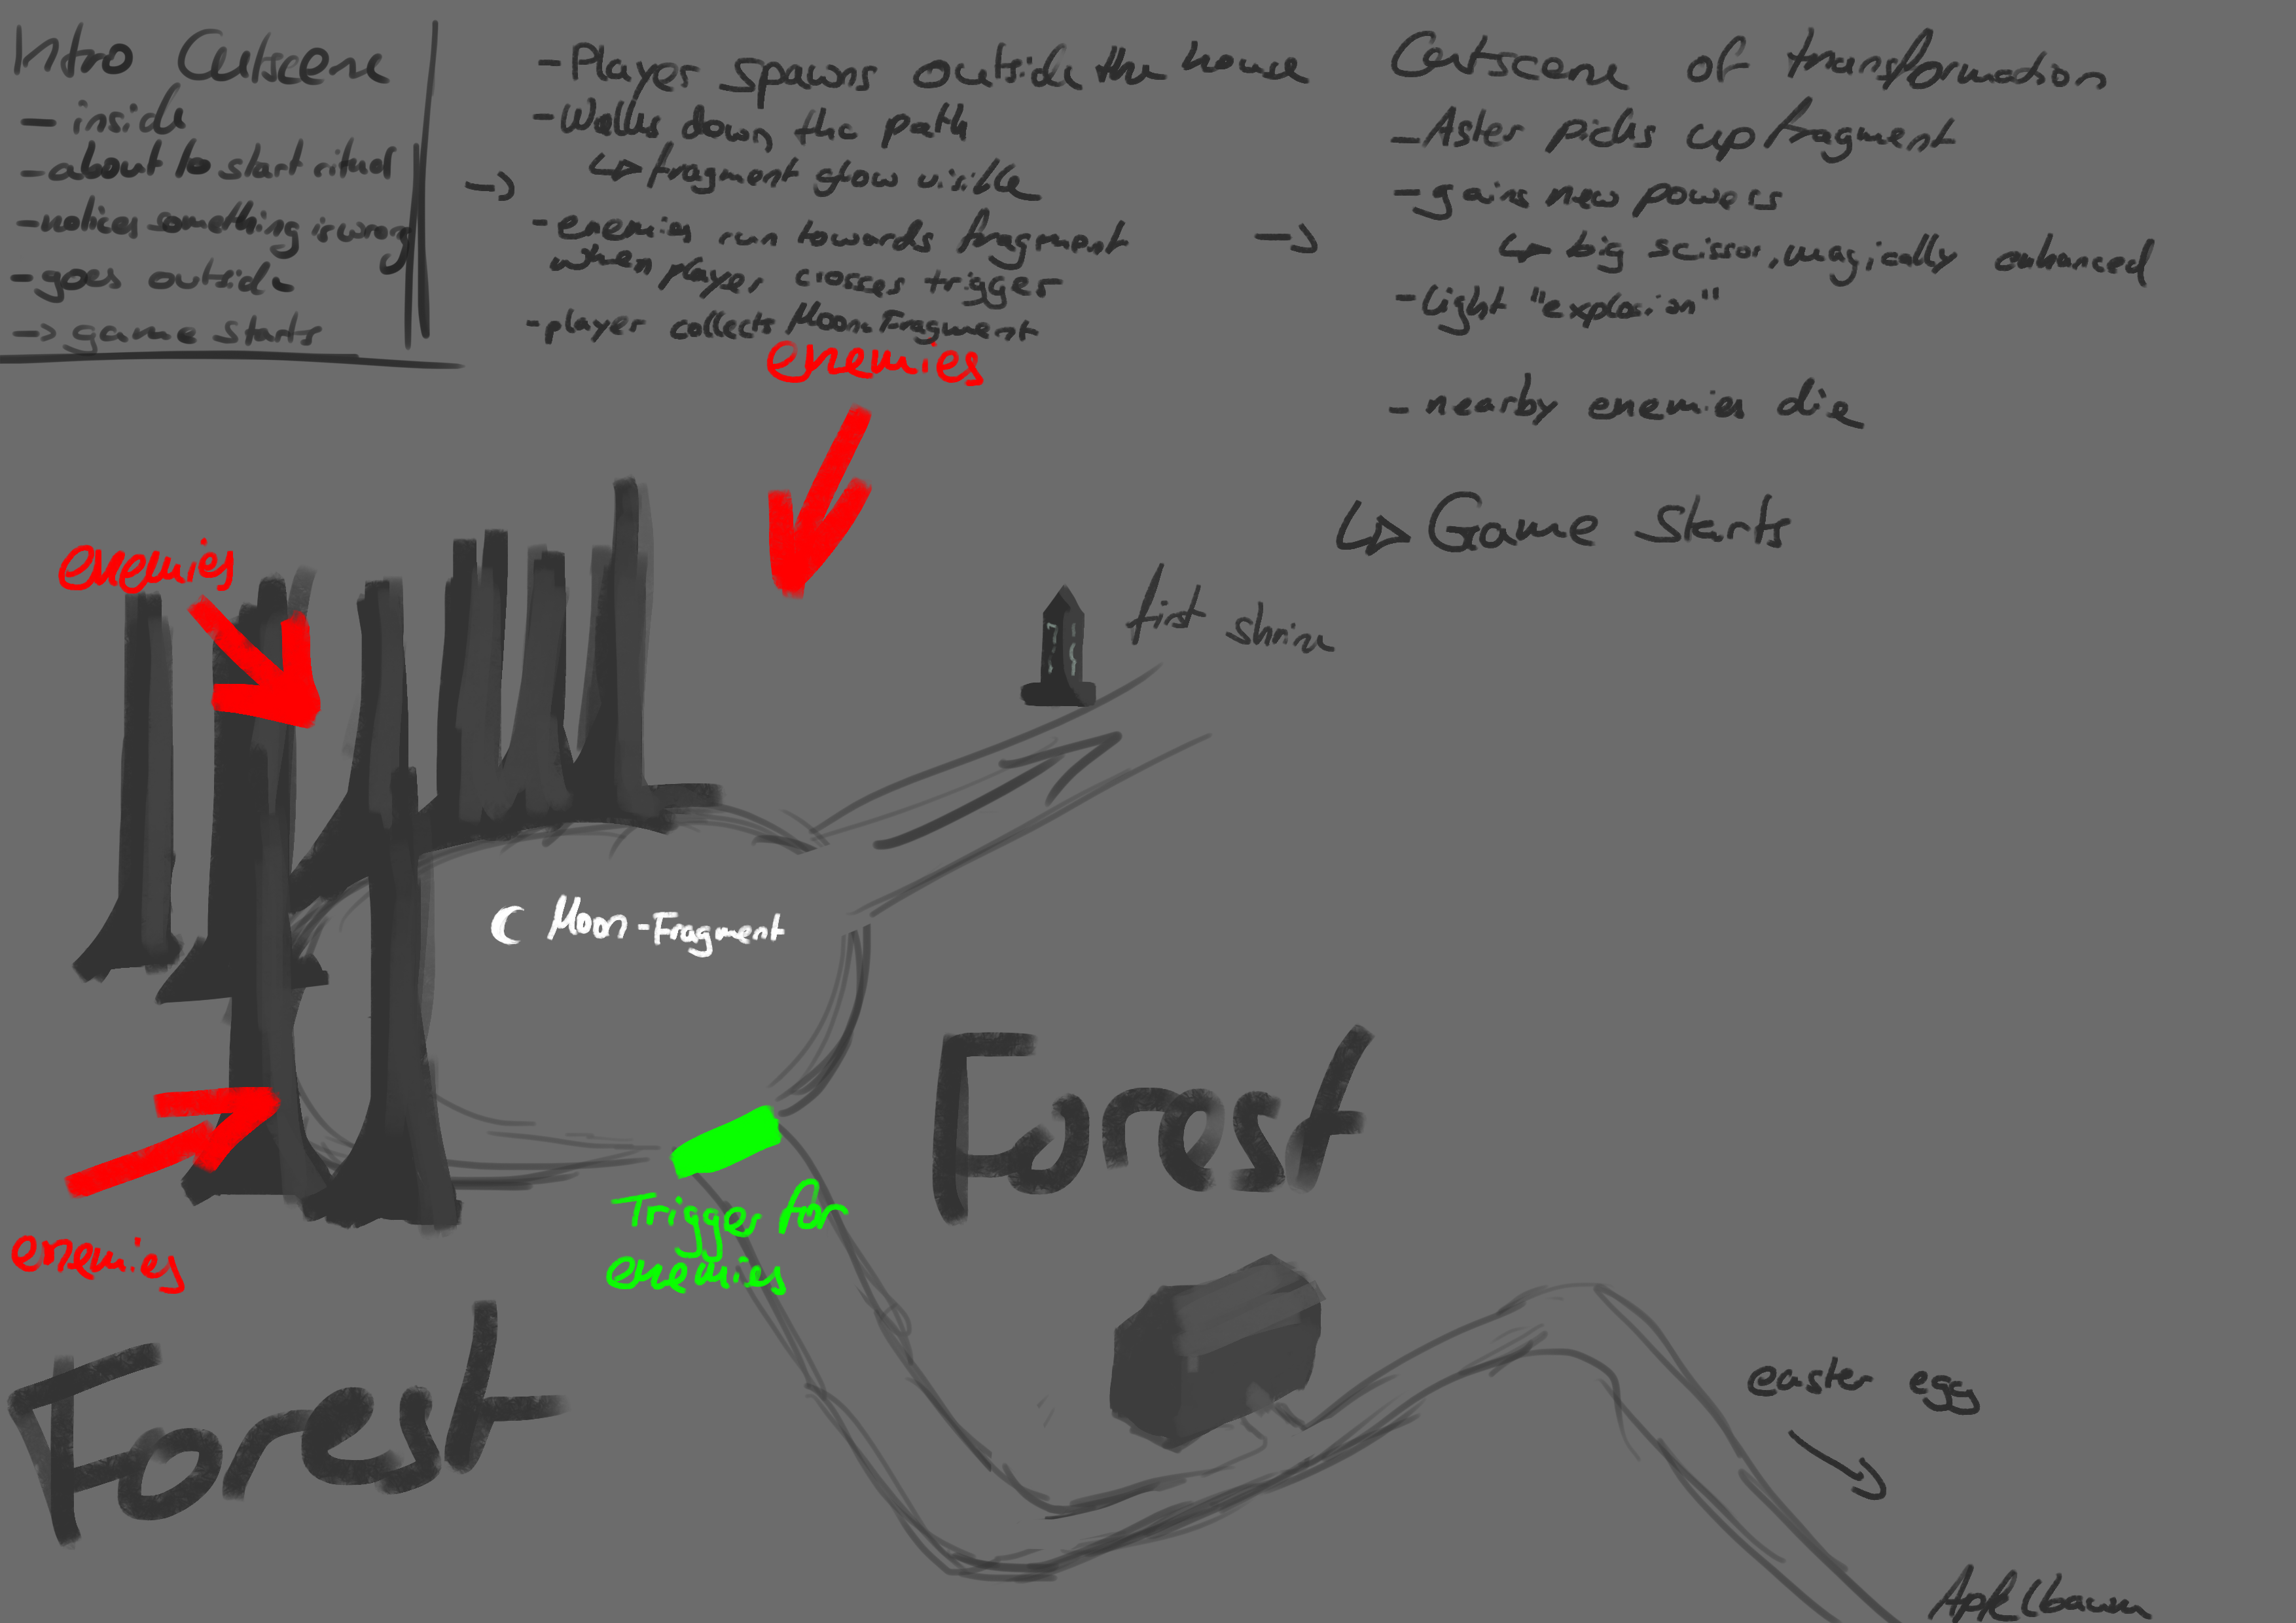 Intro Cutscene
- inside
- about to start ritual
- notices something is wrong
- goes outside
-> game starts
- Player spawns outside the house
- Walks down the path
↳ fragment glow visible
- enemies run towards fragment
when player crosses trigger
- player collects Moon-Fragment
Cutscene of transformation
- Aster picks up fragment
- gains new powers
↳ big scissor, magically enhanced
- light "explosion"
- nearby enemies die
↳ Game Start
enemies
enemies
first shrine
Moon-Fragment
Forest
Trigger for
enemies
enemies
Forest
easter egg
Apfelbaum